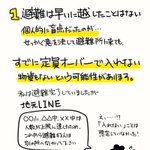 1 避難は早いに越したことはない
個人的に盲点だったが…
せっかく意を決して避難所に来ても、
すでに定員オーバーで入れない
物資もない という可能性があります。
私は避難完了していましたが
地元LINE
○○小、△△中、××中は
人数が上限に達したため、
この中で避難する人は
え…!!
「入れない」ことは
想定していなかった!